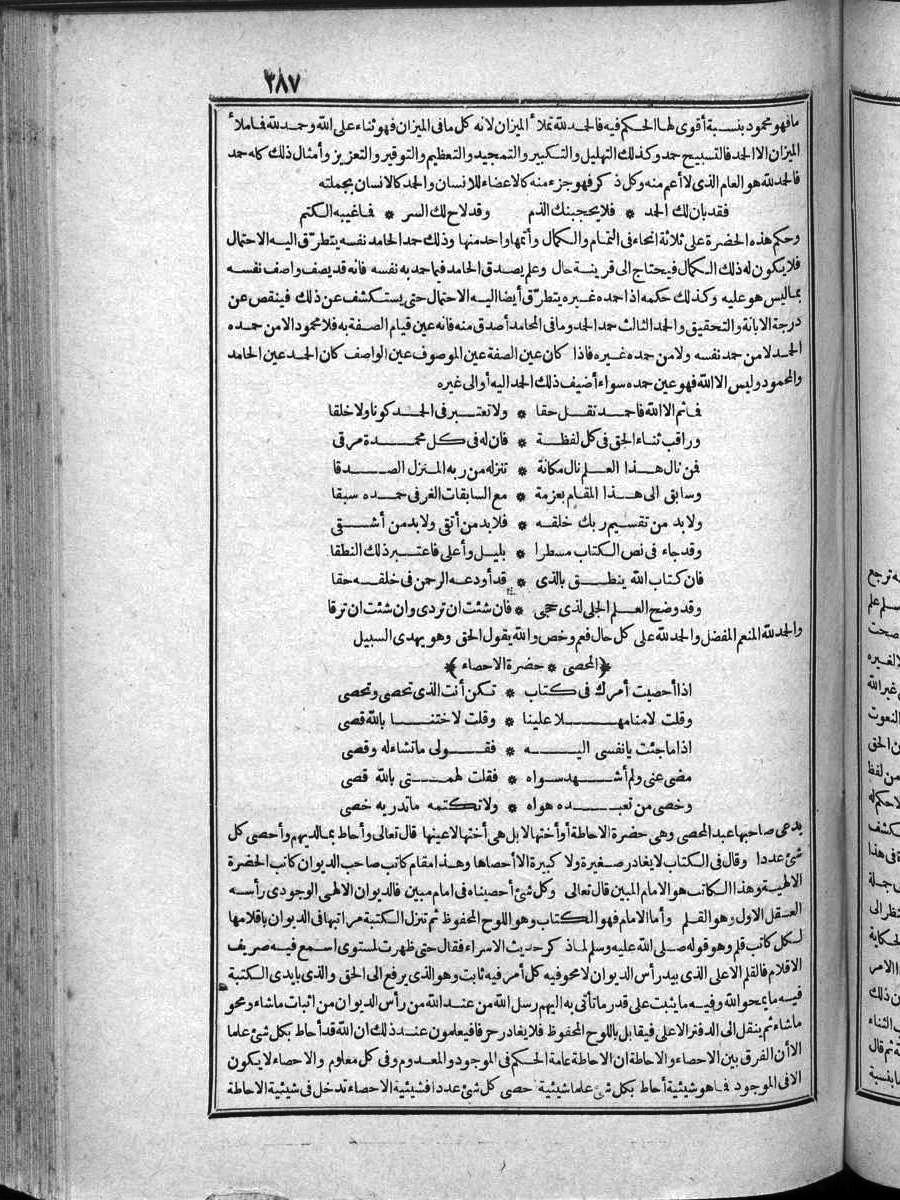 ٣٨٧
ما فهو محمود بنسبة أقوى لها الحكم فيه فالحمد لله تملأ الميزان لانه كل ما فى الميزان فهو ثناء على الله وحمد لله فما ملأ
الميزان الا الحمد فالتسبيح حمد وكذلك التهليل والتكبير والتمجيد والتعظيم والتوقير والتعزيز وأمثال ذلك كله حمد
فالحمد لله هو العام الذى لا أعم منه وكل ذكر فهو جزء منه كالاعضاء للانسان والحمد كالانسان بجملته
فقد بان لك الحمد * فلا يحجبنك الذم وقد لاح لك السر * فما غيبه الكتم
وحكم هذه الحضرة على ثلاثة انحاء فى التمام والكمال وأتمها واحد منها وذلك حمد الحامد نفسه يتطرّق اليه الاحتمال
فلا يكون له ذلك الكمال فيحتاج الى قرينة حال وعلم يصدق الحامد فيما حمد به نفسه فانه قد يصف واصف نفسه
بما ليس هو عليه وكذلك حكمه اذا حمده غيره يتطرّق أيضا اليه الاحتمال حتى يستكشف عن ذلك فينقص عن
درجة الابانة والتحقيق والحمد الثالث حمد الحمد وما فى المحامد أصدق منه فانه عين قيام الصفة به فلا محمود الا من حمده
الحمد لا من حمد نفسه ولا من حمده غيره فاذا كان عين الصفة عين الموصوف عين الواصف كان الحمد عين الحامد
والمحمود وليس الا الله فهو عين حمده سواء أضيف ذلك الحمد اليه أو الى غيره
فما ثم الا الله فاحمد نقل حقا * ولا تعتبر فى الحمد كونا ولا خلقا
وراقب ثناء الحق فى كل لفظة * فان له فى كل محمدة مرقى
فمن نال هذا العلم نال مكانة * تنزله من ربه المنزل الصدقا
وسابق الى هذا المقام بعزمة * مع السابقات الغر فى حمده سبقا
ولا بد من تقسيم ربك خلقه * فلا بد من أتقى ولا بد من أشقى
وقد جاء فى نص الكتاب مسطرا * بليل وأعلى فاعتبر ذلك النطقا
فان كتاب الله ينطق بالذى * قد أودعه الرحمن فى خلقه حقا
وقد وضح العلم الجلى لذى حجى * فان شئت ان تردى وان شئت ان ترقا
والحمد لله المنعم المفضل والحمد لله على كل حال فعم وخص والله يقول الحق وهو يهدى السبيل
﴿المحصى * حضرة الاحصاء﴾
اذا أحصيت أمرك فى كتاب * تكن أنت الذى تحصى وتحصى
وقلت لامنا مهلا علينا * وقلت لاختنا بالله قصى
اذا ما جئت يا نفسى اليه * فقولى ما تشاء له وقصى
مضى عنى ولم أشهد سواه * فقلت لهمتى بالله قصى
وخصى من تعبده هواه * ولا تكتمه ما تدريه خصى
يدعى صاحبها عبد المحصى وهى حضرة الاحاطة أو أختها لا بل هى أختها لا عينها قال تعالى وأحاط بما لديهم وأحصى كل
شئ عددا وقال فى الكتاب لا يغادر صغيرة ولا كبيرة الا أحصاها وهذا مقام كاتب صاحب الديوان كاتب الحضرة
الالهية وهذا الكاتب هو الامام المبين قال تعالى وكل شئ أحصيناه فى امام مبين فالديوان الالهى الوجودى رأسه
العقل الاول وهو القلم وأما الامام فهو الكتاب وهو اللوح المحفوظ ثم تنزل الكتبة مراتبها فى الديوان باقلامها
لكل كاتب قلم وهو قوله صلى الله عليه وسلم لما ذكر حديث الاسراء فقال حتى ظهرت لمستوى اسمع فيه صريف
الاقلام فالقلم الاعلى الذى بيد رأس الديوان لا محو فيه كل أمر فيه ثابت وهو الذى يرفع الى الحق والذى بايدى الكتبة
فيه ما يمحو الله وفيه ما يثبت على قدر ما تأتى به اليهم رسل الله من عند الله من رأس الديوان من اثبات ما شاء ومحو
ما شاء ثم ينقل الى الدفتر الاعلى فيقابل باللوح المحفوظ فلا يغادر حرفا فيعلمون عند ذلك ان الله قد أحاط بكل شئ علما
الا أن الفرق بين الاحصاء والاحاطة ان الاحاطة عامة الحكم فى الموجود والمعدوم وفى كل معلوم والاحصاء لا يكون
الا فى الموجود فما هو شيئية أحاط بكل شئ علما شيئية أحصى كل شئ عددا فشيئية الاحصاء تدخل فى شيئية الاحاطة